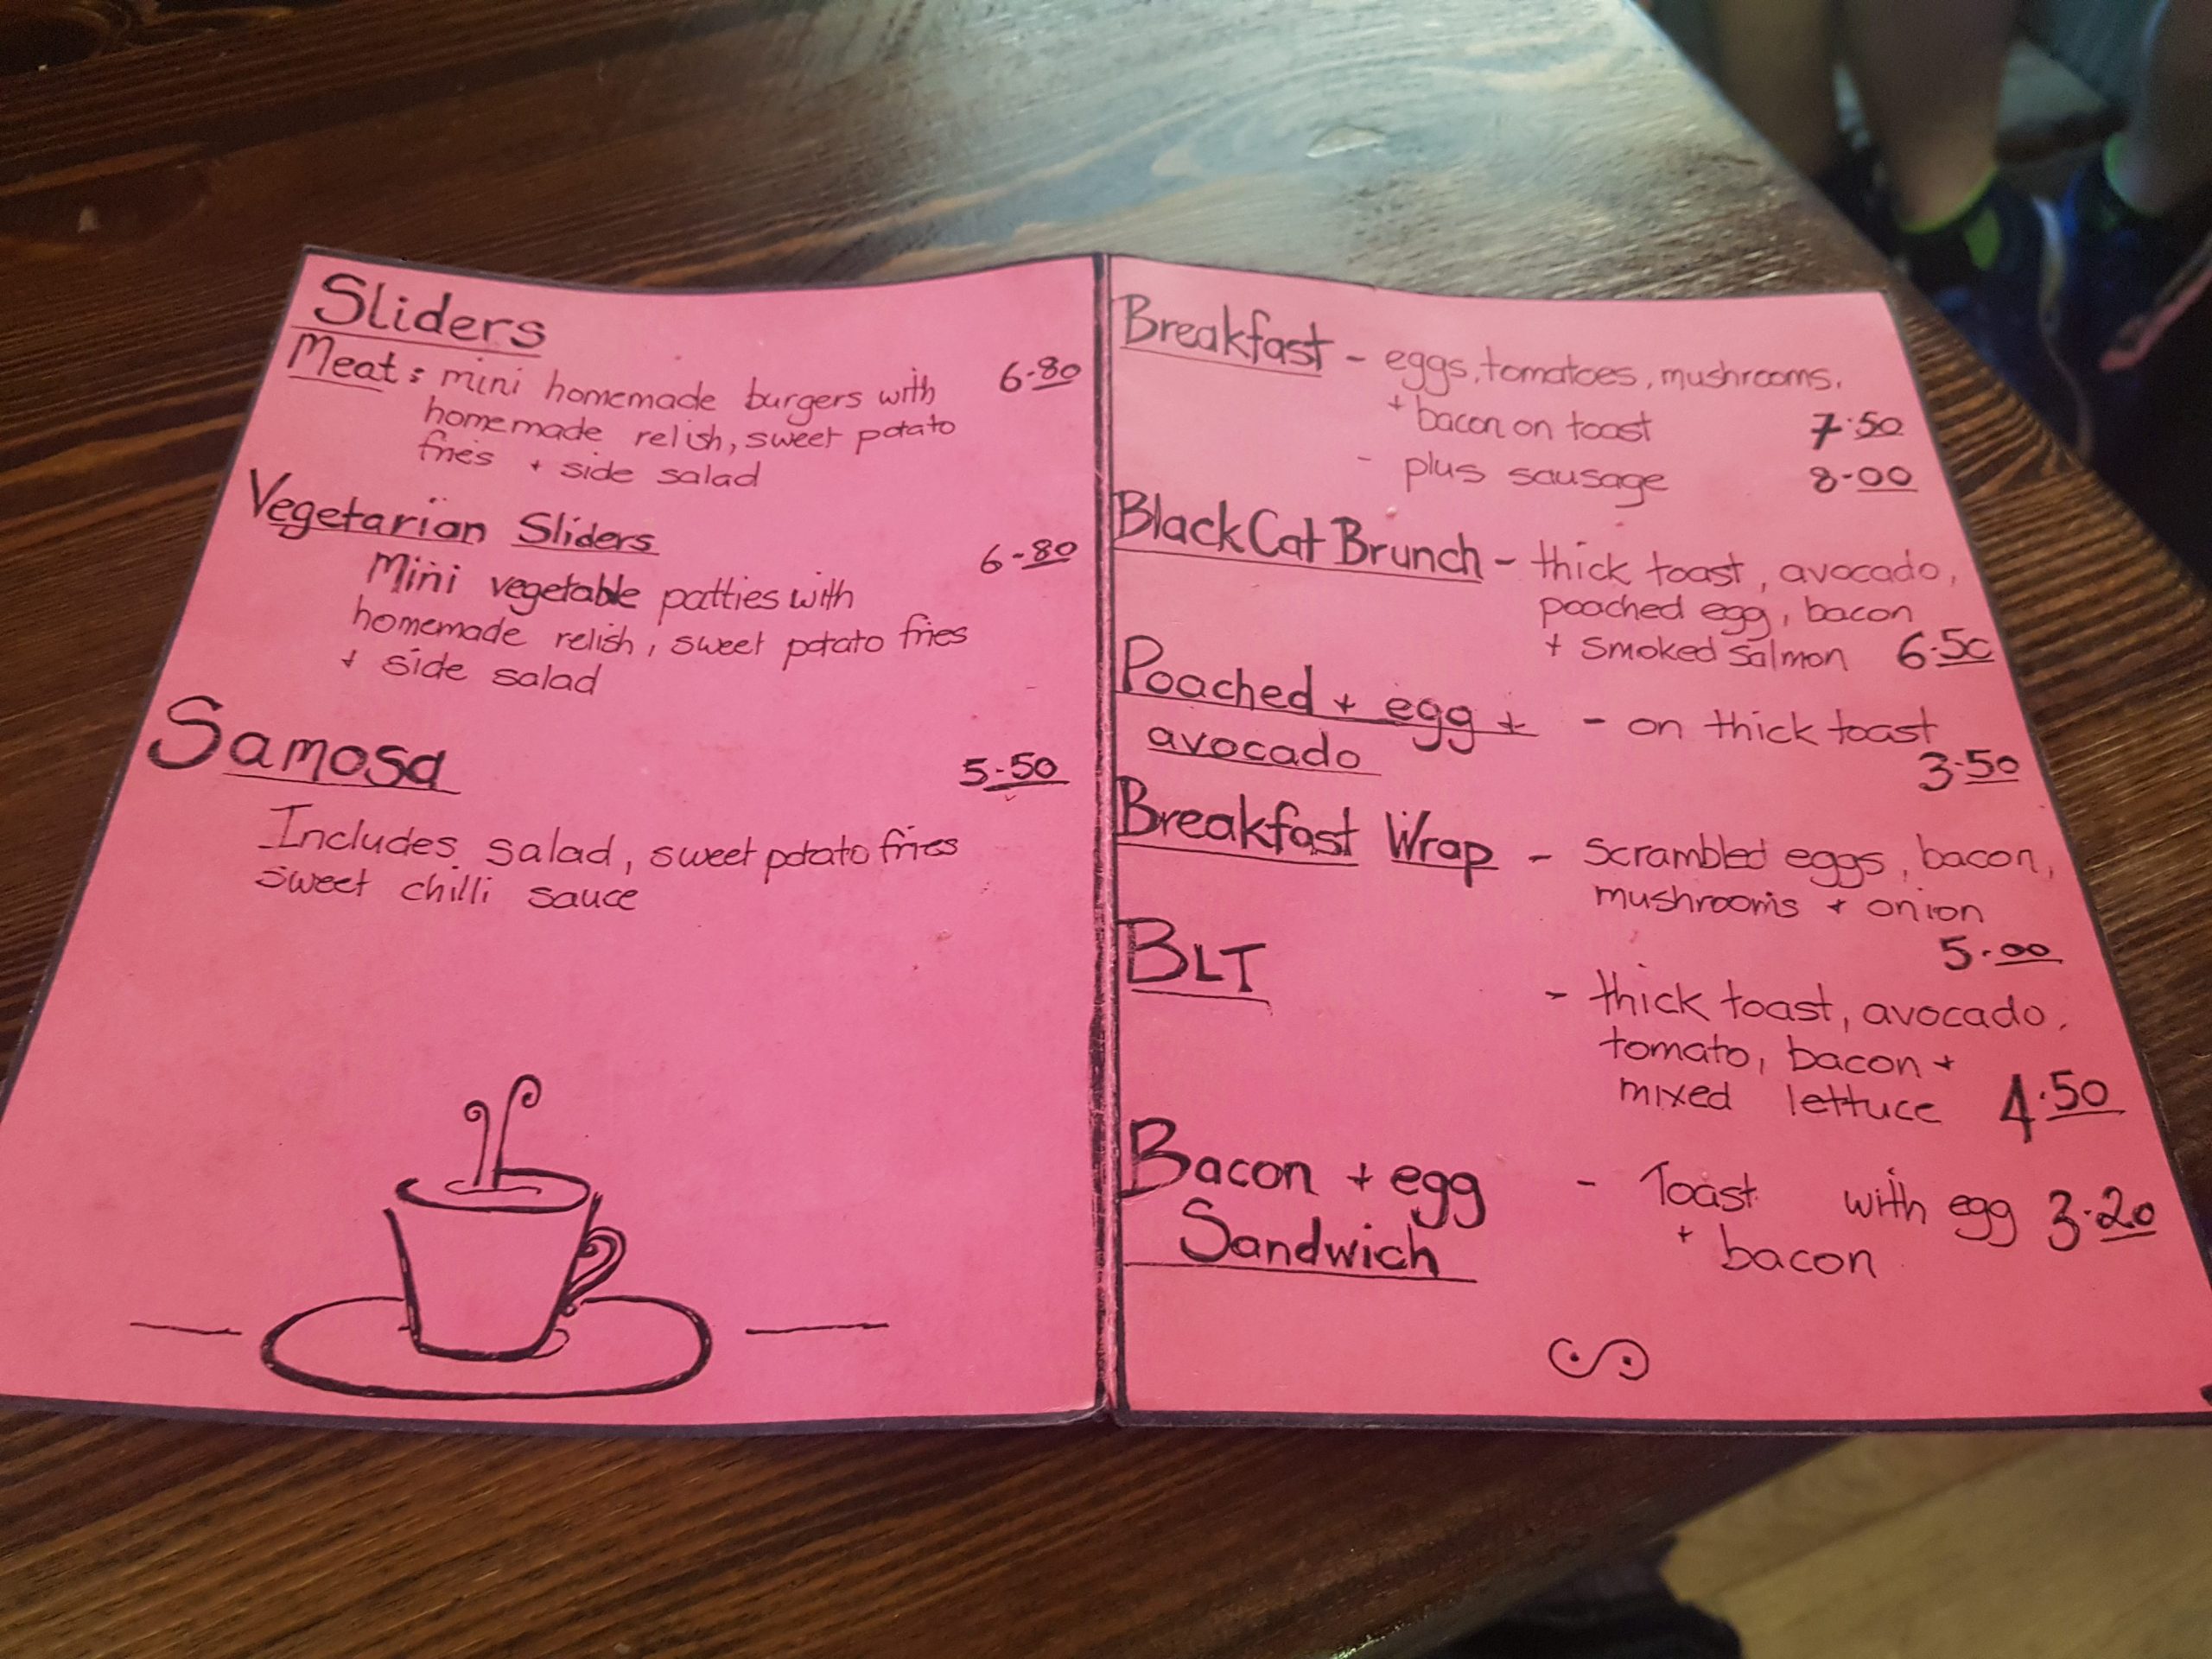 Sliders
Meat: mini homemade burgers with 6-80
homemade relish, sweet potato
fries + side salad
Vegetarian Sliders 6-80
Mini vegetable patties with
homemade relish, sweet potato fries
+ side salad
Samosa 5-50
Includes salad, sweet potato fries
sweet chilli sauce
Breakfast - eggs, tomatoes, mushrooms.
+ bacon on toast 7.50
- plus sausage 8-00
Black Cat Brunch - thick toast, avocado,
poached egg, bacon
+ smoked salmon 6.50
Poached + egg + - on thick toast
avocado 3.50
Breakfast Wrap - Scrambled eggs, bacon,
mushrooms + onion
5.00
BLT - thick toast, avocado,
tomato, bacon +
mixed lettuce 4.50
Bacon + egg - Toast with egg 3.20
Sandwich + bacon